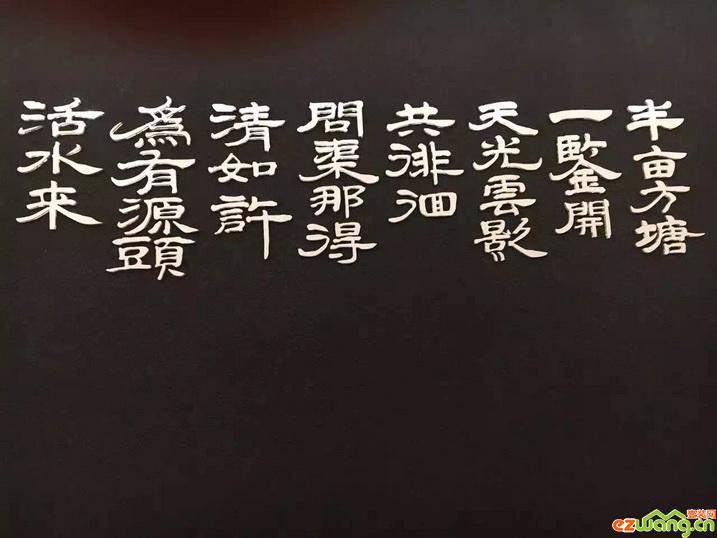 半亩方塘
一鑒開
天光雲影
共徘徊
問渠那得
清如許
為有源頭
活水来
窝装网
ezwang.cn